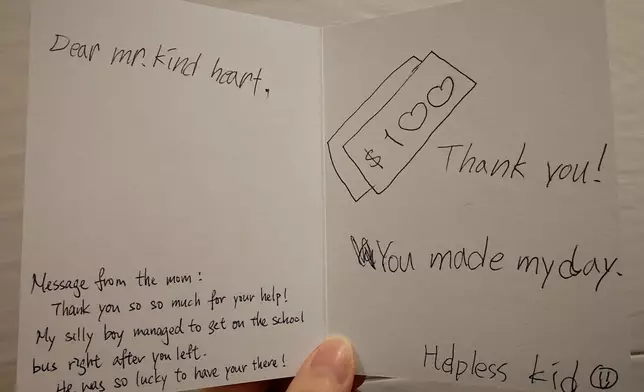 Dear mr. kind heart,
Message from the mom :
Thank you so so much for your help!
My silly boy managed to get on the school
bus right after you left.
He was so lucky to have your there!
$100
Thank you!
You made my day.
Helpless kid